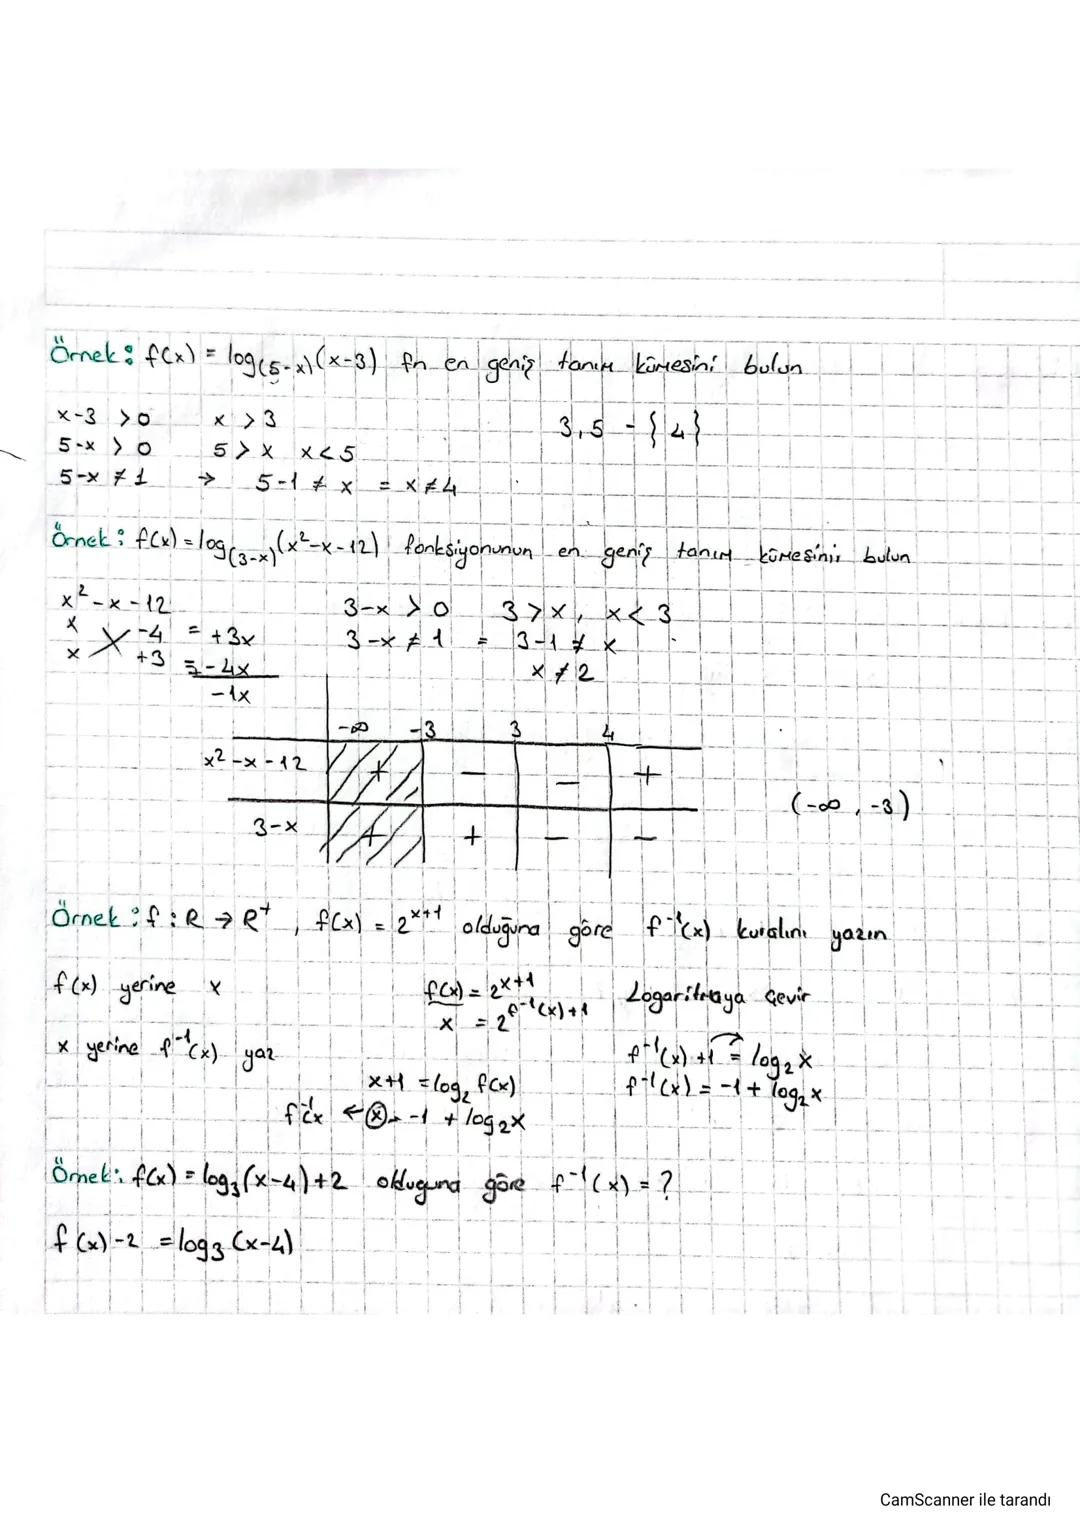 Örnek: f(x) = log(5-x)(x-3) fn en geniş tanım kümesini bulun
x-3 >0 x >3 3,5 - {4}
5-x >0 5>x x<5
5-x ≠1 → 5-1 ≠ x = x≠4
Örnek: f(x) = log(3-x)(x²-x-12) fonksiyonunun en geniş tanım kümesini bulun
x²-x-12 3-x >0 3>x, x<3
x -4 = +3x 3-x ≠ 1 = 3-1 ≠ x
x +3 = -4x x ≠2
-1x
-∞ -3 3 4
x²-x-12 + - - +
(-∞, -3)
3-x + + - -
Örnek: f: R → R⁺, f(x) = 2^(x+1) olduğuna göre f⁻¹(x) kuralını yazın
f(x) yerine x f(x) = 2^(x+1) Logaritmaya çevir
x = 2^(f⁻¹(x)+1)
x yerine f⁻¹(x) yaz f⁻¹(x) +1 = log₂x
x+1 = log₂ f(x) f⁻¹(x) = -1 + log₂x
f⁻¹(x ← x = -1 + log₂x
Örnek: f(x) = log₃(x-4)+2 olduguna göre f⁻¹(x) = ?
f(x)-2 = log₃(x-4)
CamScanner ile tarandı